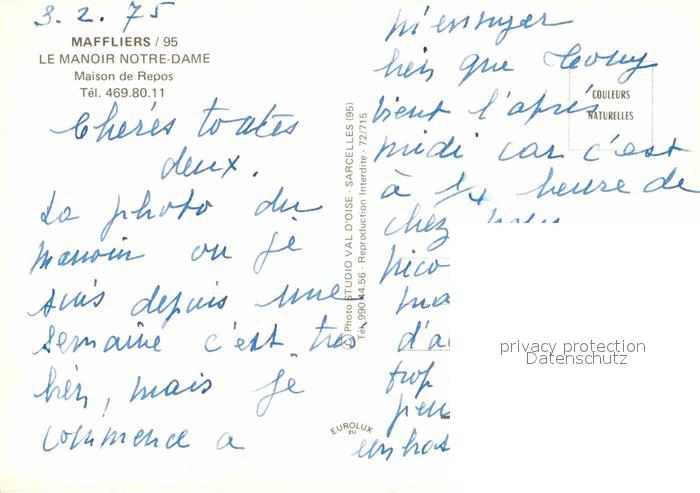 3.2.75
MAFFLIERS / 95
LE MANOIR NOTRE-DAME
Maison de Repos
Tél. 469.80.11
Chérès toutes
deux.
La photo du
manoir ou je
suis depuis une
semaine c'est tres
bien, mais je
commence a
© Photo STUDIO VAL D'OISE - SARCELLES (95)
Tél. 990.44.56 - Reproduction Interdite - 72/715
EUROLUX
m'ennuyer
bien que
vient l'après
midi car c'est
à 1/4 heure de
chez
COULEURS
NATURELLES
trop
privacy protection
Datenschutz